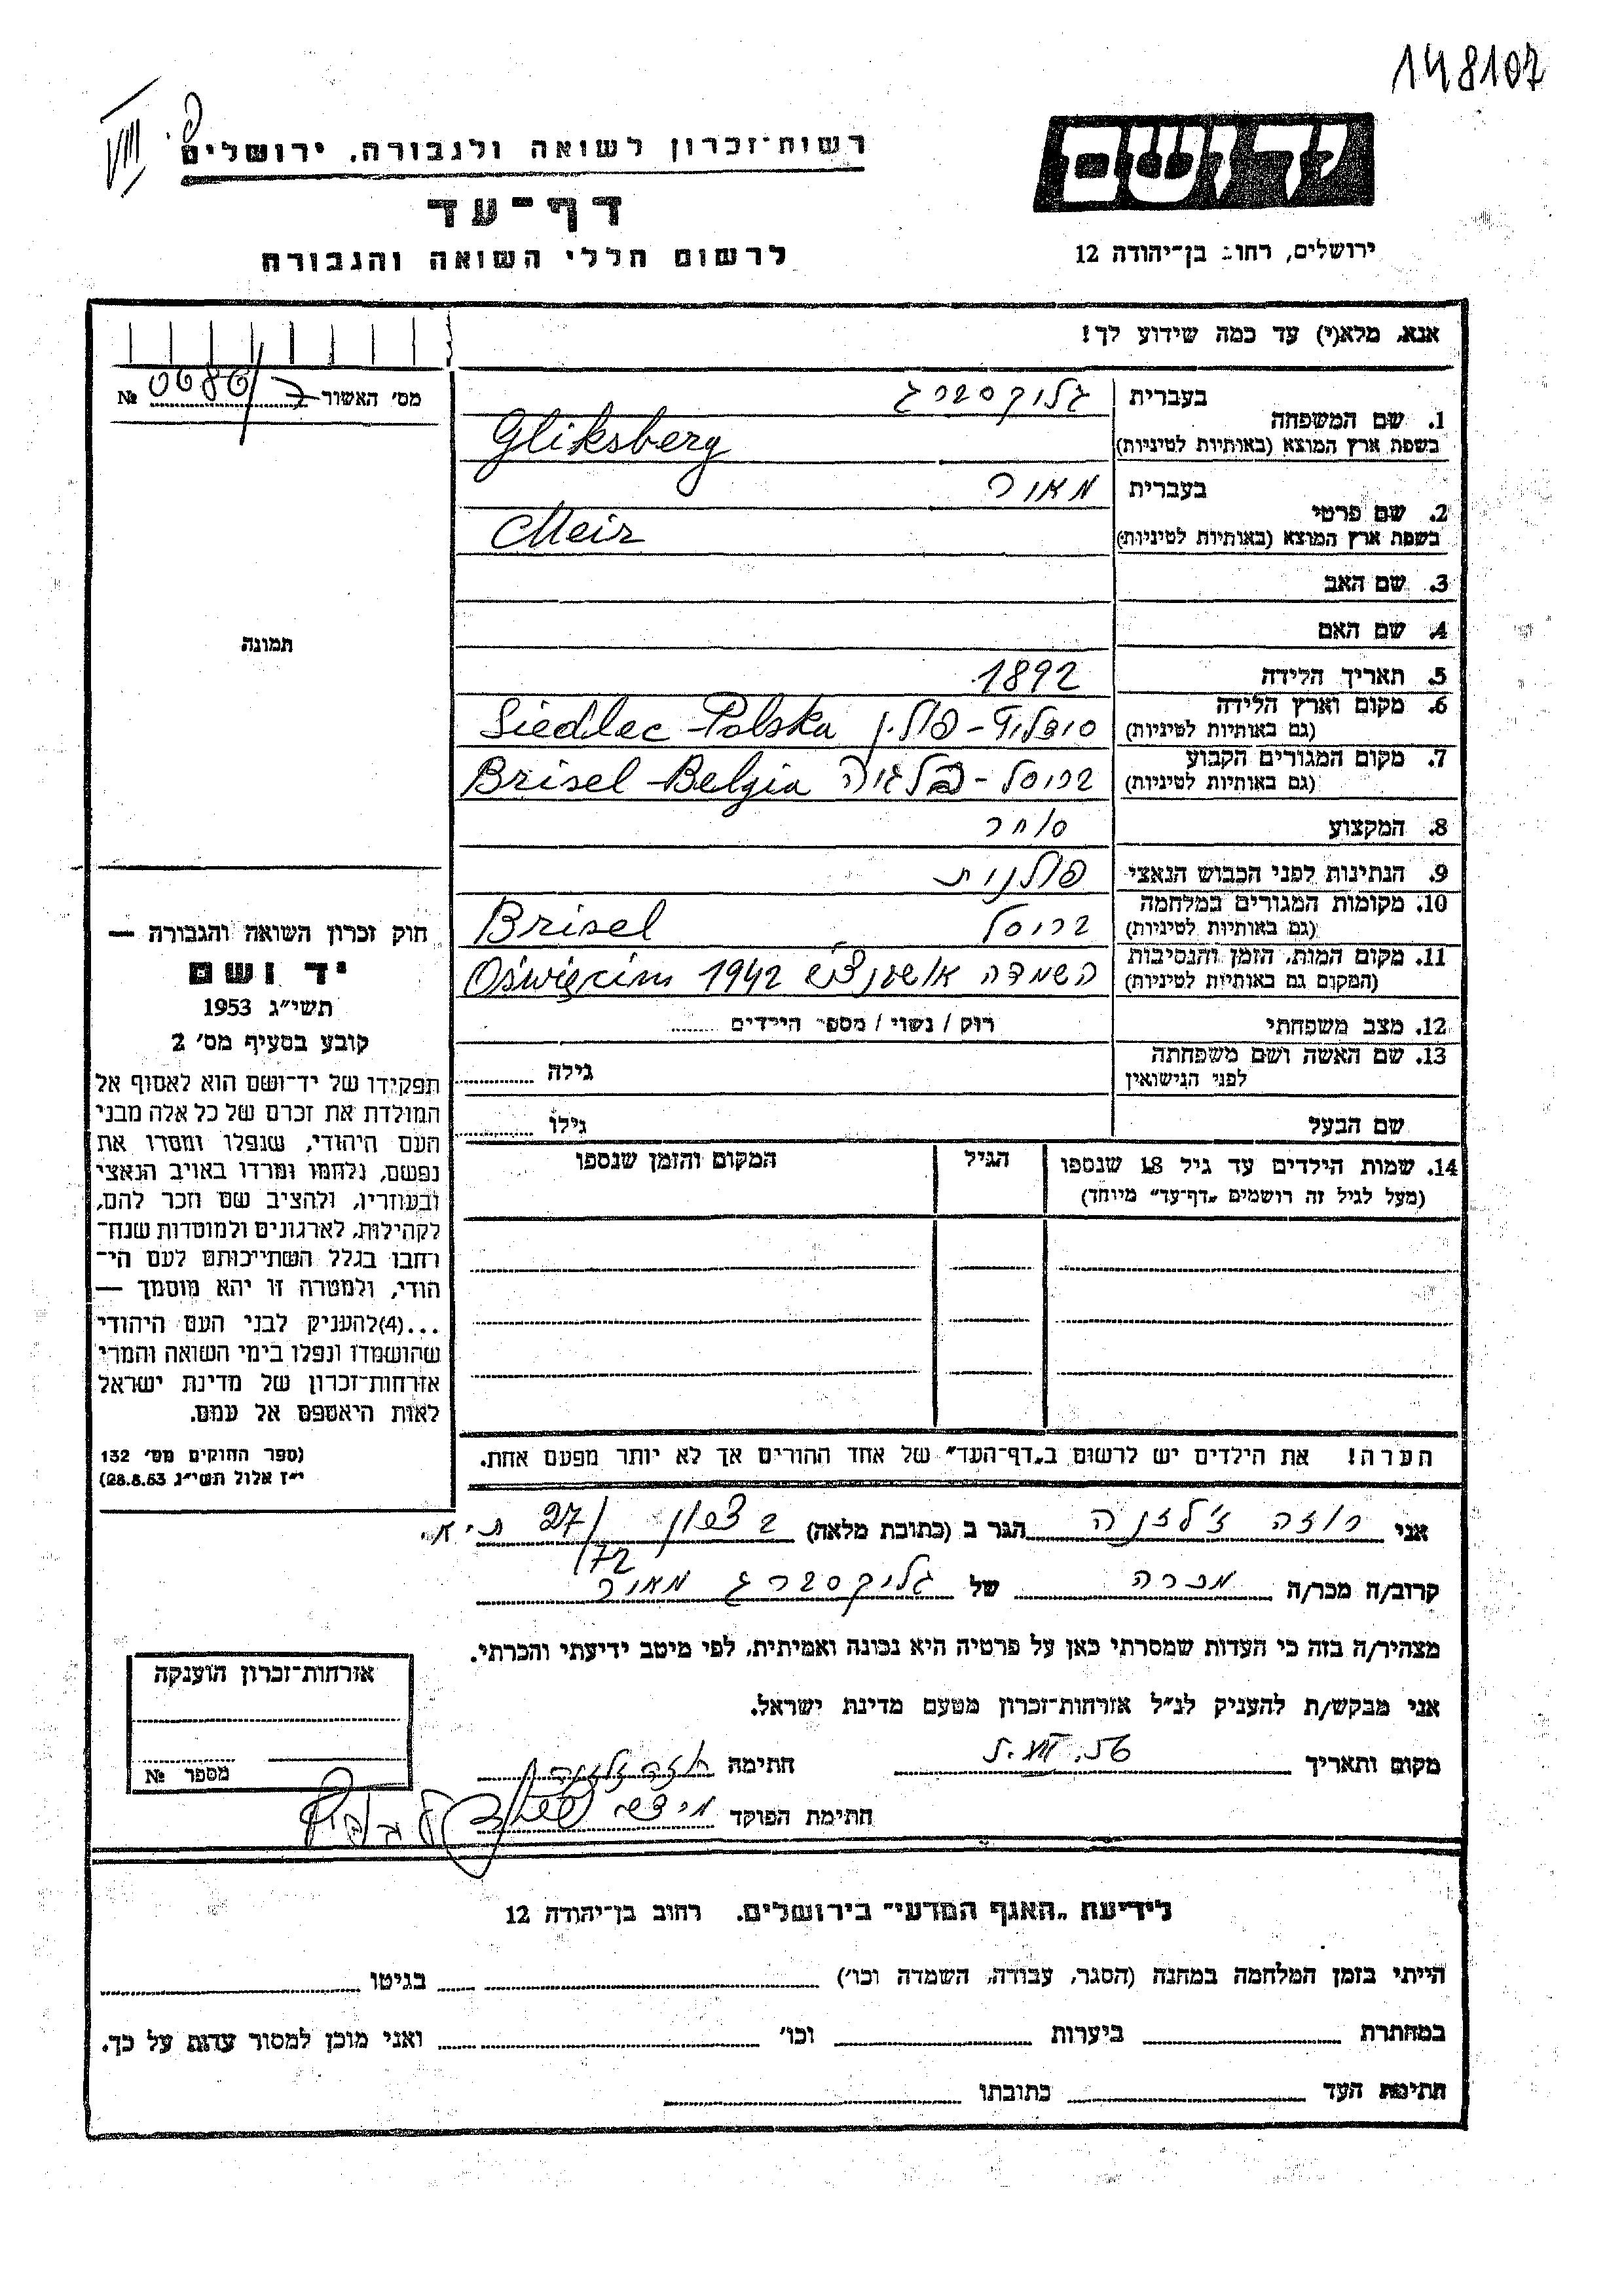 148107
רשות־זכרון לשואה ולגבורה. ירושלים
יד ושם
דף־עד
לרשום חללי השואה והגבורה
ירושלים, רחוב בן־יהודה 12
אנא, מלא(י) עד כמה שידוע לך!
מס׳ האשור № 0686/7
תמונה
1. שם המשפחה
בעברית גליקסברג
בשפת ארץ המוצא (באותיות לטיניות) Gliksberg
2. שם פרטי
בעברית מאיר
בשפת ארץ המוצא (באותיות לטיניות) Meir
3. שם האב
4. שם האם
5. תאריך הלידה 1892
6. מקום וארץ הלידה
(גם באותיות לטיניות) פולין Siedlec - Polska
7. מקום המגורים הקבוע
(גם באותיות לטיניות) בריסל - בלגיה Brisel - Belgia
8. המקצוע סוחר
9. הנתינות לפני הכבוש הנאצי פולנית
10. מקומות המגורים במלחמה
(גם באותיות לטיניות) בריסל Brisel
11. מקום המות, הזמן והנסיבות
(המקום גם באותיות לטיניות) השמדה 1942 Oświęcim
12. מצב משפחתי רוק / נשוי / מספר הילדים
13. שם האשה ושם משפחתה
לפני הנישואין גילה
שם הבעל גילו
14. שמות הילדים עד גיל 18 שנספו
(מעל לגיל זה רושמים „דף־עד״ מיוחד)
הגיל
המקום והזמן שנספו
הערה! את הילדים יש לרשום ב„דף־העד״ של אחד ההורים אך לא יותר מפעם אחת.
חוק זכרון השואה והגבורה —
יד ושם
תשי״ג 1953
קובע בסעיף מס׳ 2
תפקידו של יד־ושם הוא לאסוף אל
המולדת את זכרם של כל אלה מבני
העם היהודי, שנפלו ומסרו את
נפשם, נלחמו ומרדו באויב הנאצי
ובעוזריו, ולהציב שם וזכר להם,
לקהילות, לארגונים ולמוסדות שנח־
רחבו בגלל השתייכותם לעם הי־
הודי, ולמטרה זו יהא מוסמך —
...(4)להעניק לבני העם היהודי
שהושמדו ונפלו בימי השואה והמרי
אזרחות־זכרון של מדינת ישראל
לאות היאספם אל עמם.
(ספר החוקים מס׳ 132
י״ז אלול תשי״ג 28.8.53)
אני רוזה ז׳לזנה הגר ב (כתובת מלאה) 27/72 ת״א
קרוב/ה מכר/ה מכרה של גליקסברג מאיר
מצהיר/ה בזה כי העדות שמסרתי כאן על פרטיה היא נכונה ואמיתית, לפי מיטב ידיעתי והכרתי.
אני מבקש/ת להעניק לנ״ל אזרחות־זכרון מטעם מדינת ישראל.
מקום ותאריך 5.VII.56 חתימה רוזה זלזנה
חתימת הפוקד
אזרחות־זכרון הוענקה
מספר №
לידיעת „האגף המדעי״ בירושלים. רחוב בן־יהודה 12
הייתי בזמן המלחמה במחנה (הסגר, עבודה, השמדה וכו׳) בגיטו
במחתרת ביערות וכו׳ ואני מוכן למסור עדות על כך.
חתימת העד כתובתו